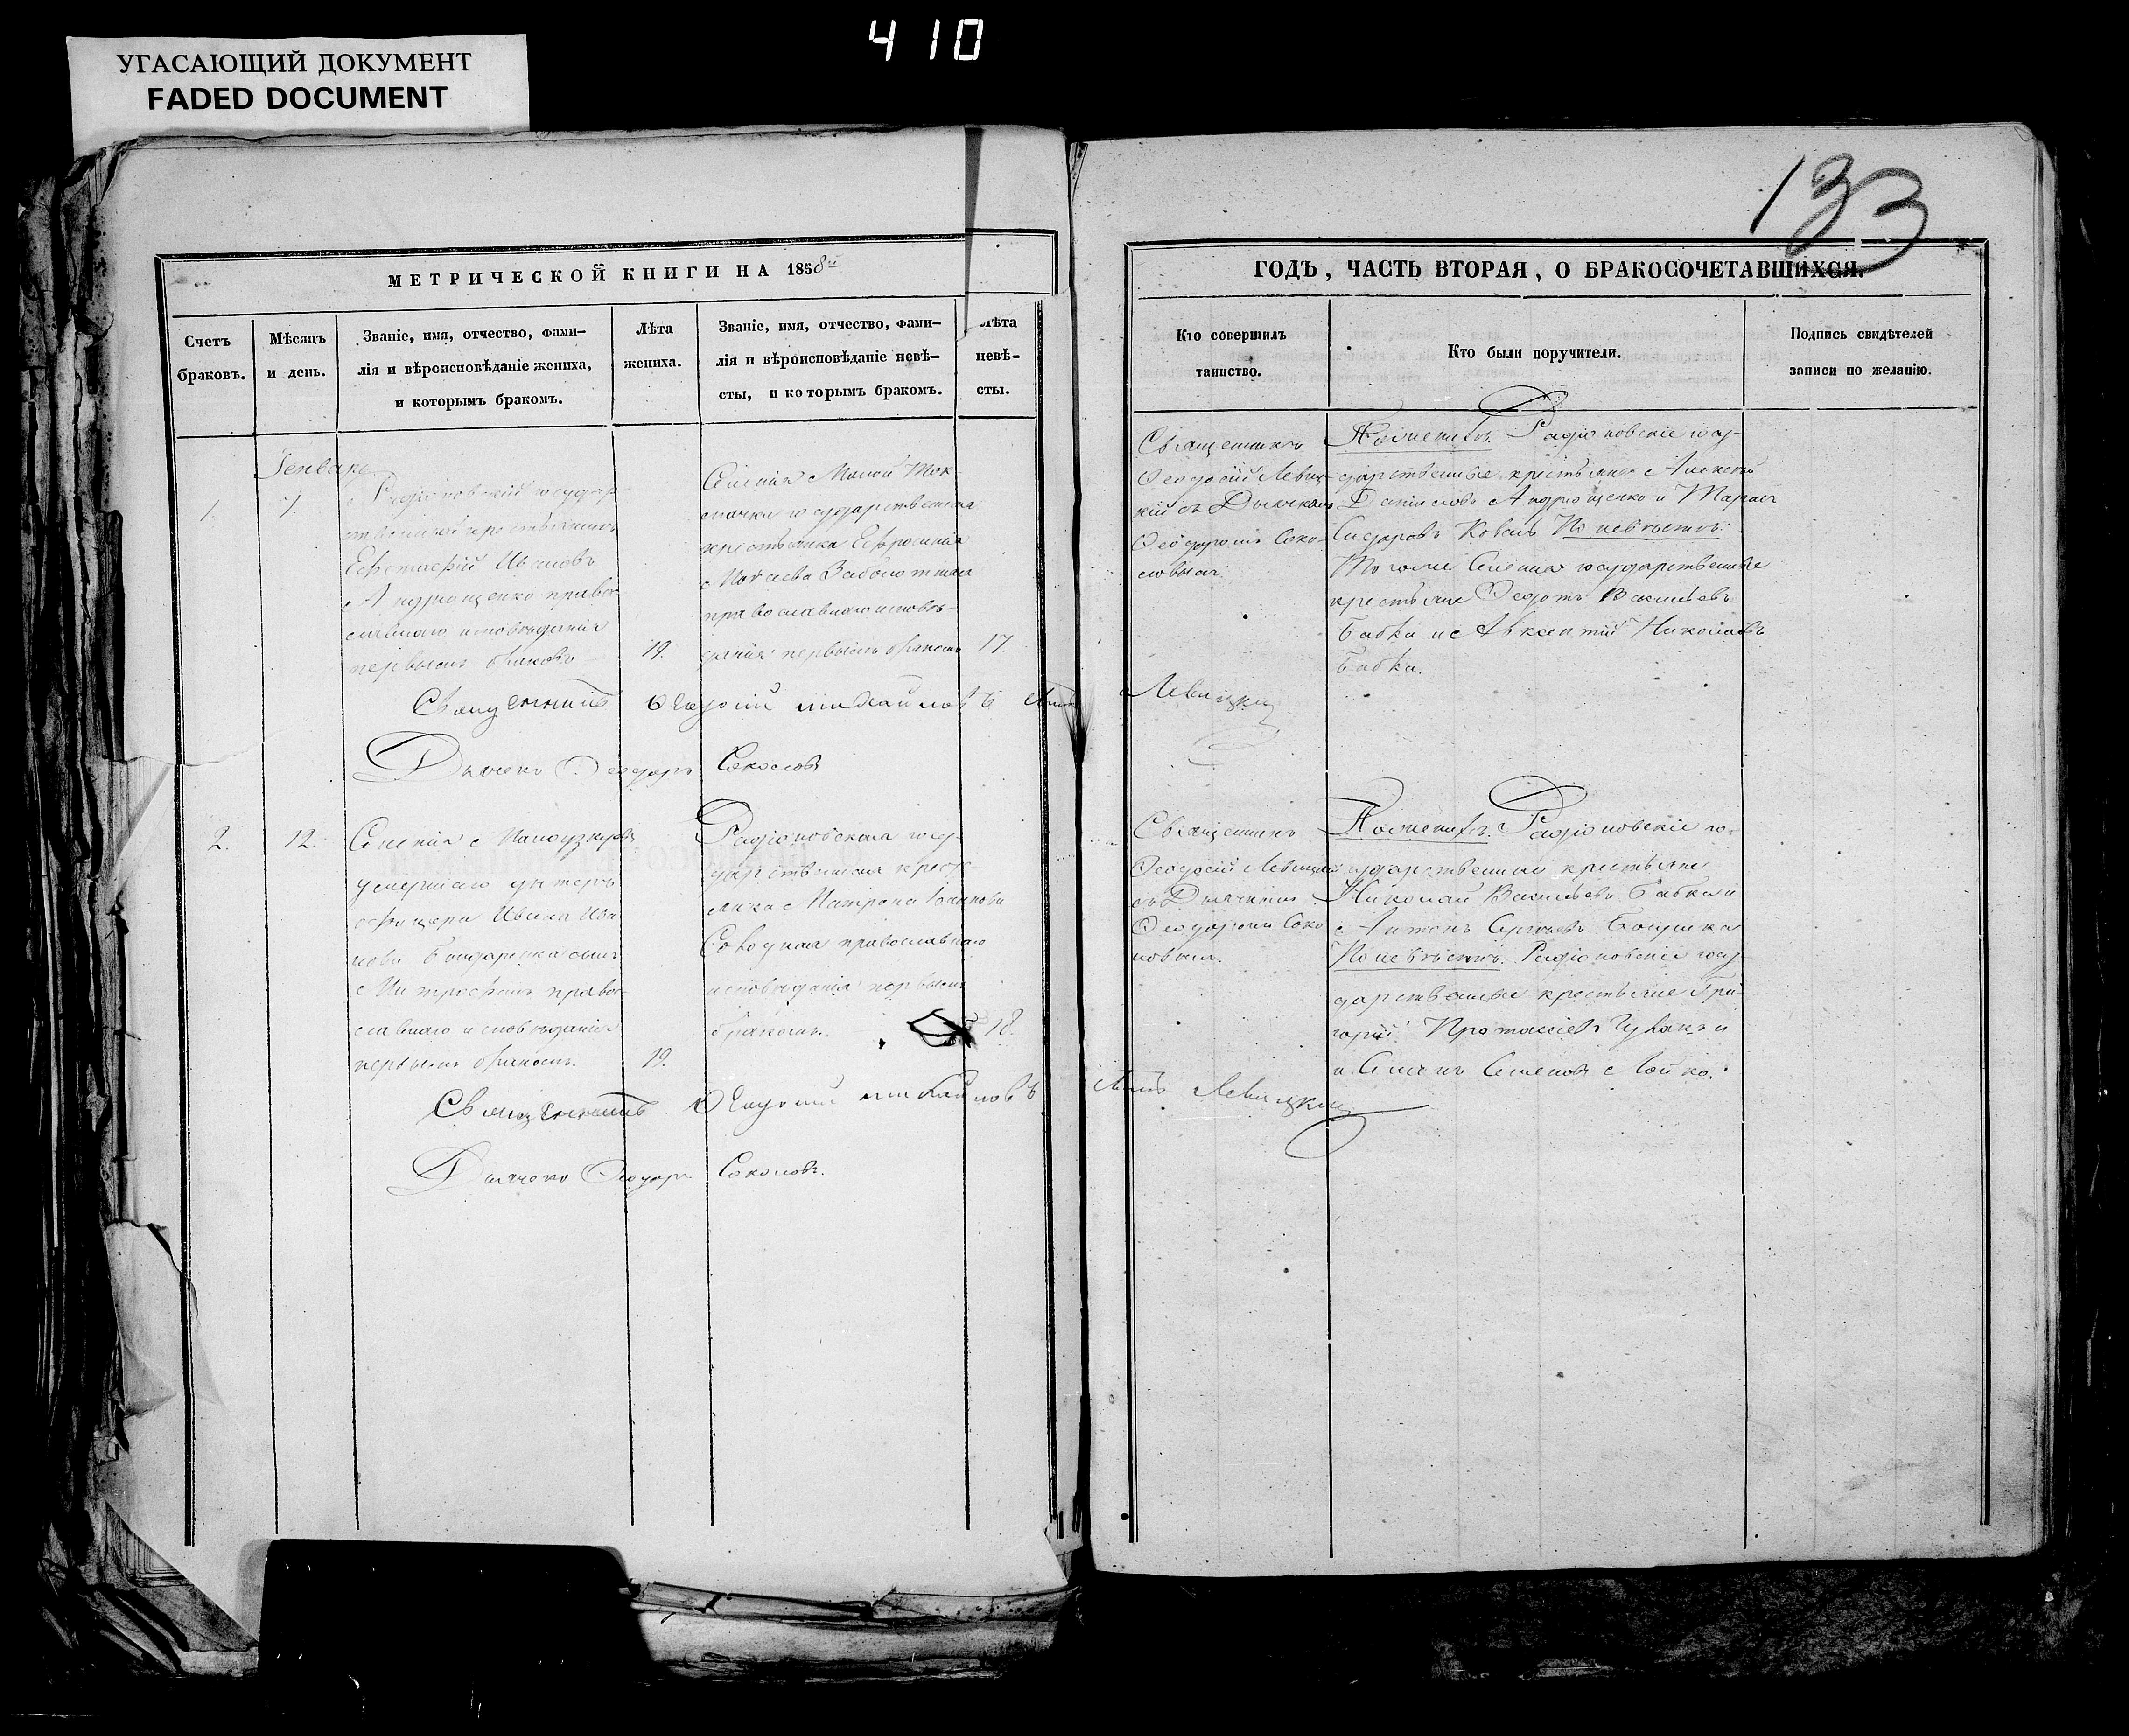 410
УГАСАЮЩИЙ ДОКУМЕНТ
FADED DOCUMENT
133
МЕТРИЧЕСКОЙ КНИГИ НА 1858й
ГОДЪ, ЧАСТЬ ВТОРАЯ, О БРАКОСОЧЕТАВШИХСЯ.
Счетъ
браковъ.
Мѣсяцъ
и день.
Званіе, имя, отчество, фами-
лія и вѣроисповѣданіе жениха,
и которымъ бракомъ.
Лѣта
жениха.
Званіе, имя, отчество, фами-
лія и вѣроисповѣданіе невѣ-
сты, и которымъ бракомъ.
Лѣта
невѣ-
сты.
Кто совершилъ
таинство.
Кто были поручители.
Подпись свидѣтелей
записи по желанію.
Генваря
1.
7.
Радіоновскій государ-
ственный крестьянинъ
Евстафій Ивановъ
Андрющенко право-
славнаго исповѣданія
первымъ бракомъ
19.
Селенія Малой Ток-
мачки государственная
крестьянка Евфросинія
Заболотная
православнаго исповѣ-
данія первымъ бракомъ
17.
Священникъ
Феодосій Левиц-
кій съ Дьячкомъ
Феодоромъ Соко-
ловымъ
По женихѣ. Радіоновскіе госу-
дарственные крестьяне Алексѣй
Даниловъ Андрющенко и Тарасъ
Сидоровъ Коваль По невѣстѣ:
Того же Селенія государственные
крестьяне Федотъ Васильевъ
Бабка и Авксентій Николаевъ
Бабка.
Священникъ Феодосій Михайловъ сынъ Левицкій
Дьячекъ Феодоръ Соколовъ
2.
12.
Селенія
умершаго унтеръ
офицера Ивана Ива-
нова Бондаренка сынъ
Митрофанъ право-
славнаго исповѣданія
первымъ бракомъ.
19.
Радіоновская госу-
дарственная крест-
янка Матрона Іоаннова
православнаго
исповѣданія первымъ
бракомъ.
18.
Священникъ
Феодосій Левицкій
съ Дьячкомъ
Феодоромъ Соко
ловымъ.
По женихѣ. Радіоновскіе го-
сударственные крестьяне
Николай Васильевъ Бабка и
Антонъ Сергѣевъ
По невѣстѣ. Радіоновскіе госу-
дарственные крестьяне Гри-
горій Протасіевъ и
Семенъ Семеновъ Лойко.
Священникъ Феодосій Михайловъ сынъ Левицкій
Дьячекъ Феодоръ Соколовъ.